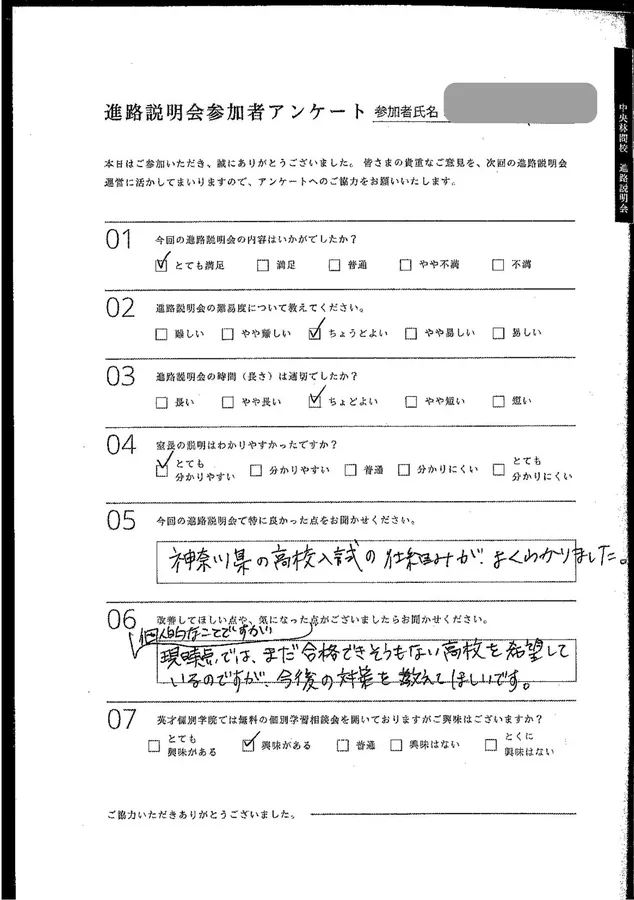 進路説明会参加者アンケート 参加者氏名
中央林間校 進路説明会
本日はご参加いただき、誠にありがとうございました。皆さまの貴重なご意見を、次回の進路説明会
運営に活かしてまいりますので、アンケートへのご協力をお願いいたします。
01 今回の進路説明会の内容はいかがでしたか?
☑ とても満足 □ 満足 □ 普通 □ やや不満 □ 不満
02 進路説明会の難易度について教えてください。
□ 難しい □ やや難しい ☑ ちょうどよい □ やや易しい □ 易しい
03 進路説明会の時間(長さ)は適切でしたか?
□ 長い □ やや長い ☑ ちょどよい □ やや短い □ 短い
04 室長の説明はわかりやすかったですか?
☑ とても分かりやすい □ 分かりやすい □ 普通 □ 分かりにくい □ とても分かりにくい
05 今回の進路説明会で特に良かった点をお聞かせください。
神奈川県の高校入試の仕組みが、よくわかりました。
06 改善してほしい点や、気になった点がございましたらお聞かせください。
個人的なことですが
現時点では、まだ合格できそうもない高校を希望して
いるのですが、今後の対策を教えてほしいです。
07 英才個別学院では無料の個別学習相談会を開いておりますがご興味はございますか?
□ とても興味がある ☑ 興味がある □ 普通 □ 興味はない □ とくに興味はない
ご協力いただきありがとうございました。